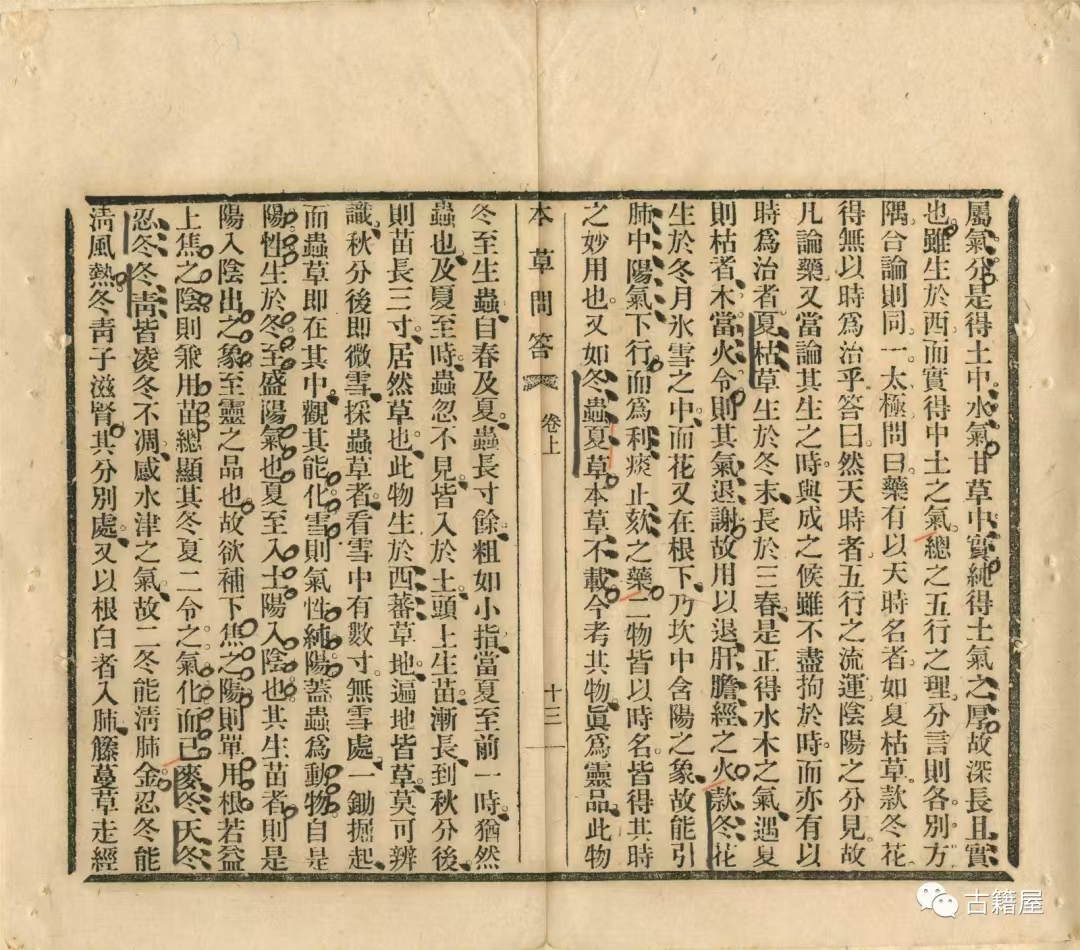 屬氣分是得土中水氣甘草中實純得土氣之厚故深長且實
也雖生於西而實得中土之氣總之五行之理分言則各別方
隅合論則同一太極問曰藥有以天時名者如夏枯草款冬花
得無以時爲治乎答曰然天時者五行之流運陰陽之分見故
凡論藥又當論其生之時與成之候雖不盡拘於時而亦有以
時爲治者夏枯草生於冬末長於三春是正得水木之氣遇夏
則枯者木當火令則其氣退謝故用以退肝膽經之火款冬花
生於冬月氷雪之中而花又在根下乃坎中含陽之象故能引
肺中陽氣下行而爲利痰止欬之藥二物皆以時名皆得其時
之妙用也又如冬蟲夏草本草不載今考其物眞爲靈品此物
本草問答 卷上 十三
冬至生蟲自春及夏蟲長寸餘粗如小指當夏至前一時猶然
蟲也及夏至時蟲忽不見皆入於土頭上生苗漸長到秋分後
則苗長三寸居然草也此物生於西蕃草地遍地皆草莫可辨
識秋分後即微雪採蟲草者看雪中有數寸無雪處一鋤掘起
而蟲草即在其中觀其能化雪則氣性純陽蓋蟲爲動物自是
陽性生於冬至盛陽氣也夏至入土陽入陰也其生苗者則是
陽入陰出之象至靈之品也故欲補下焦之陽則單用根若益
上焦之陰則兼用苗總顯其冬夏二令之氣化而已麥冬天冬
忍冬冬靑皆凌冬不凋感水津之氣故二冬能淸肺金忍冬能
淸風熱冬靑子滋腎其分別處又以根白者入肺籐蔓草走經
古籍屋